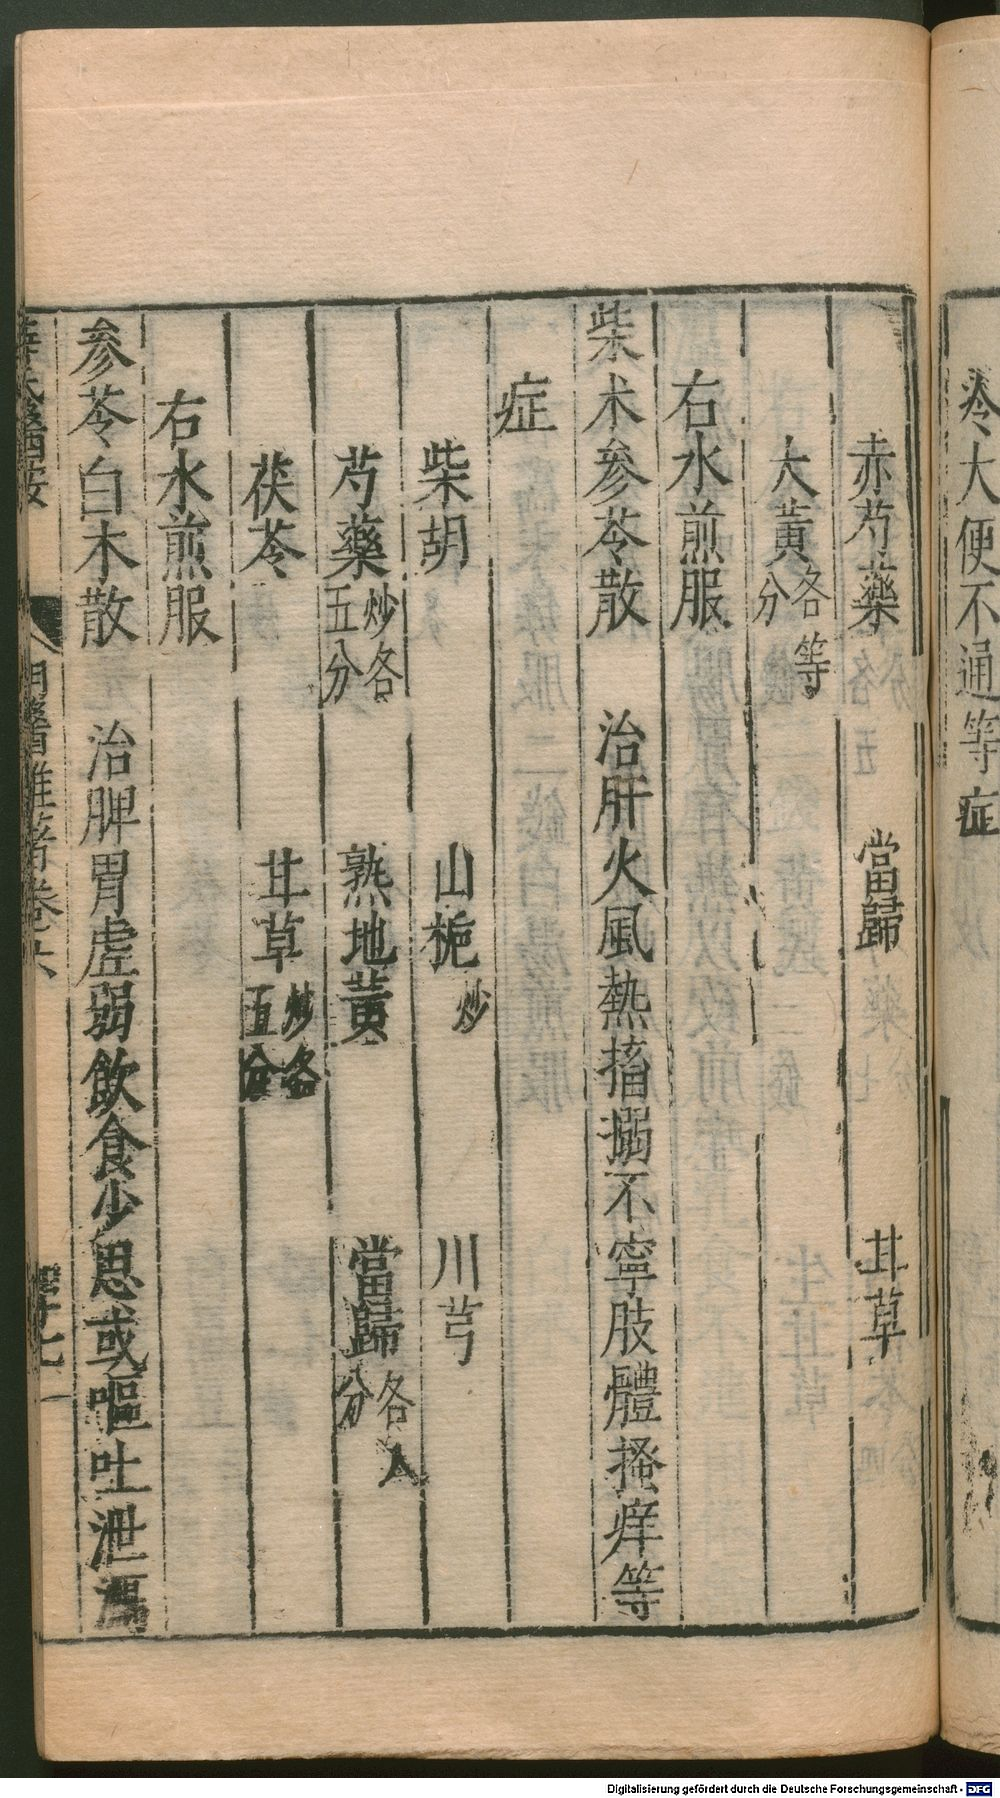 冷大便不通等症
赤芍藥 當歸 甘草
大黃各等分
右水煎服
柴朮參苓散 治肝火風熱搐搦不寧肢體搔痒等
症
柴胡 山梔炒 川芎
芍藥炒各五分 熟地黃 當歸各八分
茯苓 甘草炒各五分
右水煎服
參苓白朮散 治脾胃虛弱飲食少思或嘔吐泄瀉
薛氏醫按 明醫雜著卷六
Digitalisierung gefördert durch die Deutsche Forschungsgemeinschaft - DFG